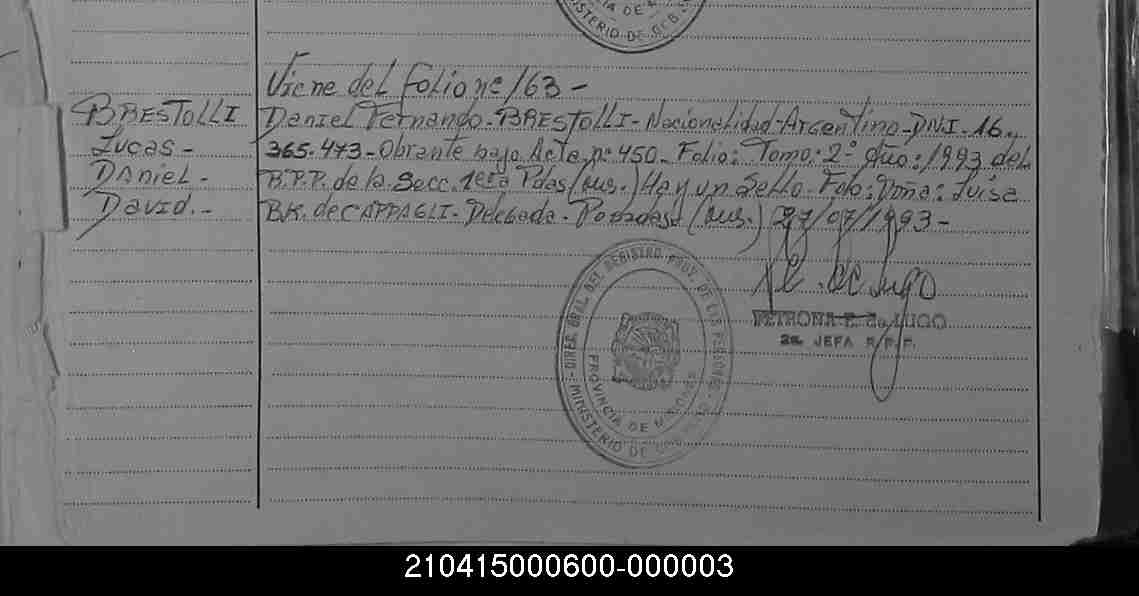 Viene del folio nº 163-
BRESTOLLI
Lucas-
Daniel-
David.-
Daniel Fernando-BRESTOLLI-Nacionalidad-Argentino-DNI-16.
365.473-Obrante bajo Acta nº 450-Folio: Tomo:2-º Año:1993 del
R.P.P. de la Secc.1era Pdas(Mis.)Hay un Sello-Fdo:Doña:Luisa
B.K. de CAPPAGLI-Delegada-Posadas-(Mis.) 27/07/1993-
PETRONA E. de LUGO
2a. JEFA R.P.P.
DIREC. GRAL. DEL REGISTRO PROV. DE LAS PERSONAS
PROVINCIA DE MISIONES
MINISTERIO DE
MINISTERIO DE GOB.
210415000600-000003